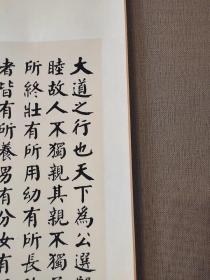 大道之行也天下為公選
睦故人不獨親其親不獨
所終壯有所用幼有所長
者皆有所養男有分女有